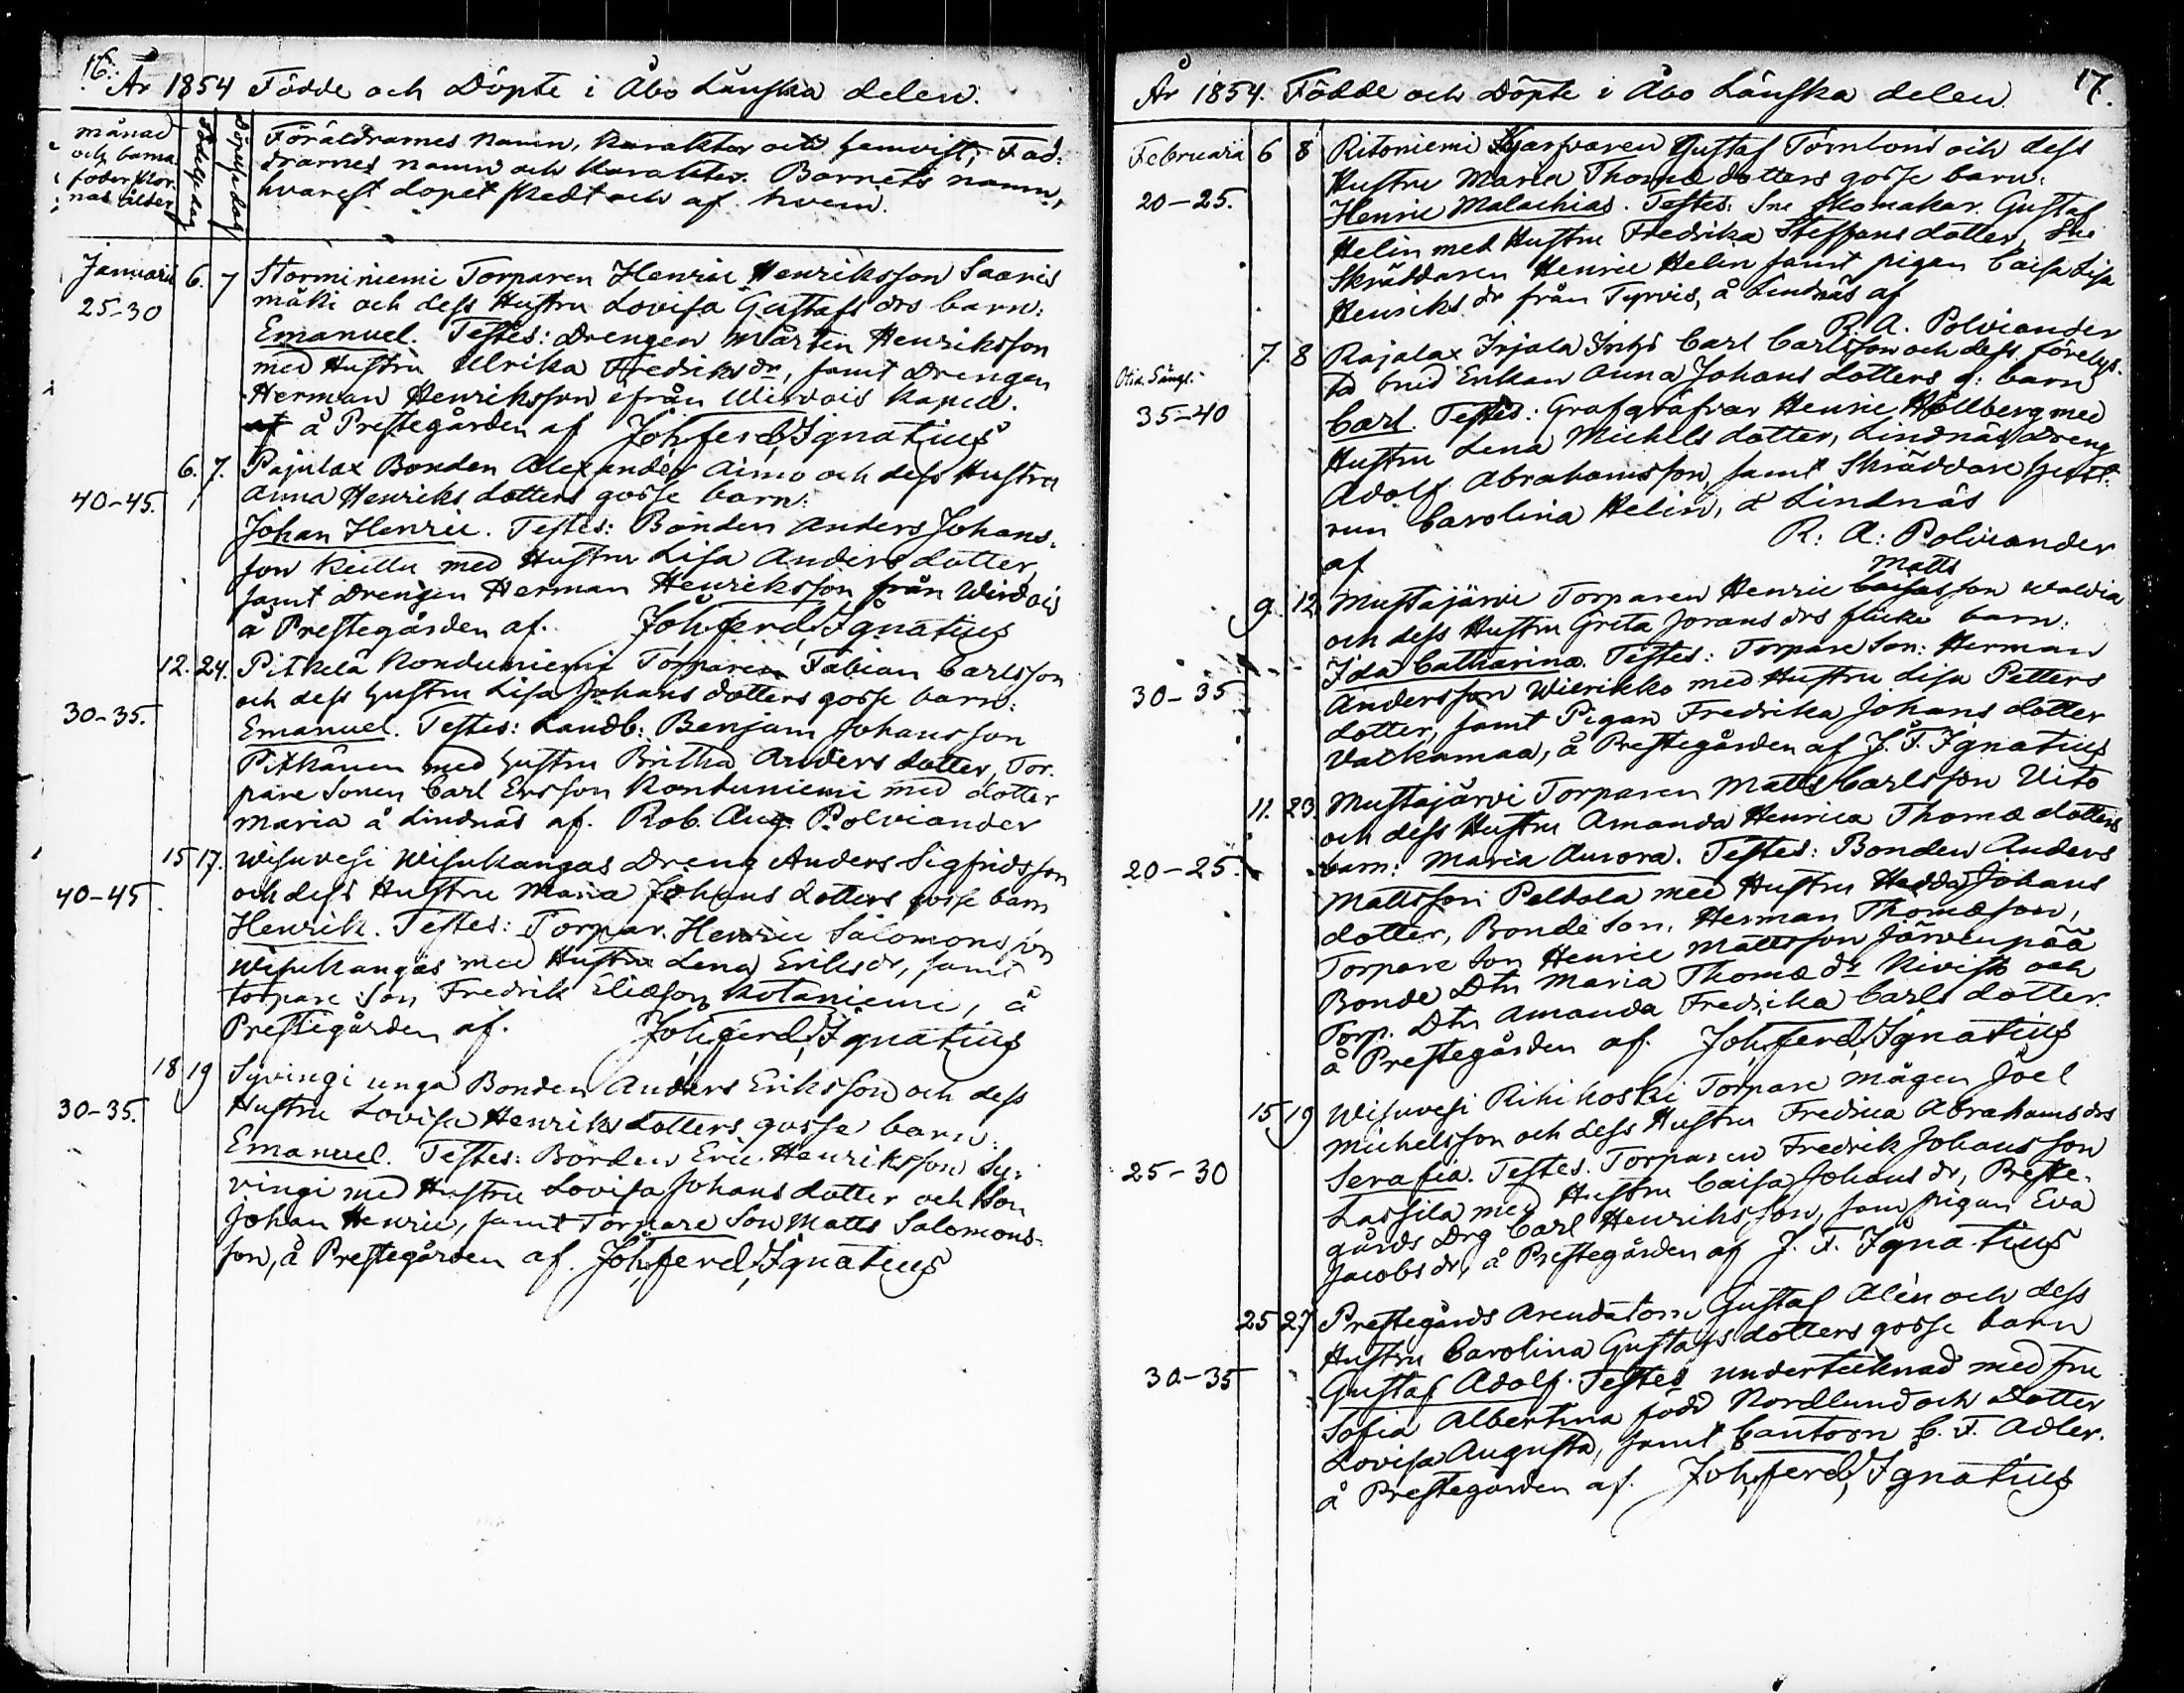 16.
År 1854 Födde och Döpte i Åbo Länska delen.
månad
och barna-
föderskor-
nas ålder
Födelsedag
Döpelsedag
Föräldrarnes Namn, Karakter och hemvist; Fad-
drarnes namn och Karakter. Barnets namn,
hvarest dopet skedt och af hvem.
Januarii 6. 7 Storminiemi Torparen Henric Henriksson Saaris
25-30 mäki och dess Hustru Lovisa Gustafs drs barn:
Emanuel. Testes: Drengen Mårten Henriksson
med Hustru Ulrika Fredriksdr, samt Drengen
Herman Henriksson från Wirdois Kapell.
å Prestegården af Joh, ferd, Ignatius
6. 7. Pajulax Bonden Alexander Aimo och dess Hustru
40-45. Anna Henriks dotters gosse barn:
Johan Henric. Testes: Bonden Anders Johans-
son Keittu med Hustru Lisa Anders dotter,
samt Drengen Herman Henriksson från Wirdois
å Prestegården af. Joh, ferd, Ignatius
12. 24. Pitkelä Konduniemi Torparen Fabian Carlsson
och dess hustru Lisa Johans dotters gosse barn:
30-35. Emanuel. Testes: Landb: Benjam Johansson
Pitkänen med hustru Britha Anders dotter, Tor-
pare sonen Carl Ersson Kontuniemi med dotter
Maria å Lindnäs af. Rob. Aug. Polviander
15 17. Wisuvesi Wisukangas Dreng Anders Sigfridsson
40-45 och dess Hustru Maria Johans dotters gosse barn
Henrik. Testes: Torpar. Henric Salomonsson
Wisukangas med Hustru Lena Eriksdr, samt
torpare son Fredrik Eliasson Kotaniemi, å
Prestegården af. Joh, ferd, Ignatius
18 19 Syvingi unga Bonden Anders Eriksson och dess
30-35. Hustru Lovisa Henriks dotters gosse barn:
Emanuel. Testes: Bonden Eric Henriksson Sy-
vingi med Hustru Lovisa Johans dotter och Son
Johan Henric, samt Torpare Son Matts Salomons-
son, å Prestegården af. Joh, ferd, Ignatius
17.
År 1854. Födde och Döpte i Åbo Länska delen.
Februarii 6 8 Ritoniemi Gustaf Törnbom och dess
Hustru Maria Thomæ dotters gosse barn:
20-25. Henric Malachias. Testes: Sne Skomakar. Gustaf
Helin med Hustru Fredrika Steffans dotter, Sne
Skräddaren Henric Helin samt pigan Caisa Lisa
Henriks dr från Tyrvis, å Lindnäs af
R. A. Polviander
7. 8 Rajalax Irjala Inhs Carl Carlsson och dess förelys-
ta brud Enkan Anna Johans dotters g: barn
35-40 Carl. Testes: Grafgräfvar Henric Hällberg med
Hustru Lena Michels dotter, Lindnäs Dreng
Adolf Abrahamsson, samt Skräddare
Carolina Helin, å Lindnäs
af R: A: Polviander
9. 12 Mustajärvi Torparen Henric Matts son Waldia
och dess Hustru Greta Jorans drs flicko barn:
Ida Catharina. Testes: Torpare Son: Herman
30-35 Andersson Wierikko med Hustru Lisa Petters
dotter, samt Pigan Fredrika Johans dotter
Valkamaa, å Prestegården af J. F. Ignatius
11. 23. Mustajärvi Torparen Matts Carlsson Uito
och dess Hustru Amanda Henrica Thomæ dotters
20-25. barn: Maria Aurora. Testes: Bonden Anders
Mattsson Peldola med Hustru Hedda Johans
dotter, Bonde Son, Herman Thomæson,
Torpare Son Henric Mattsson Järvenpää
Bonde Dtr Maria Thomæ dr Kivistö och
Torp. Dtr Amanda Fredrika Carls dotter.
å Prestegården af. Joh, ferd, Ignatius
15 19 Wisuvesi Rihikoski Torpare mågen Joel
Michelsson och dess Hustru Fredrica Abrahams drs
25-30 Serafia. Testes. Torparen Fredrik Johansson
Lassila med Hustru Caisa Johans dr, Preste-
gårds Drg Carl Henriksson, sam pigan Eva
Jacobs dr, å Prestegården af J. F. Ignatius
25 27 Prestegårds Arendatorn Gustaf Alén och dess
Hustru Carolina Gustafs dotters gosse barn
30-35 Gustaf Adolf. Testes undertecknad med fru
Sofia Albertina född Nordlund och Dotter
Lovisa Augusta, samt Cantorn C. F. Adler.
å Prestegården af. Joh, ferd, Ignatius